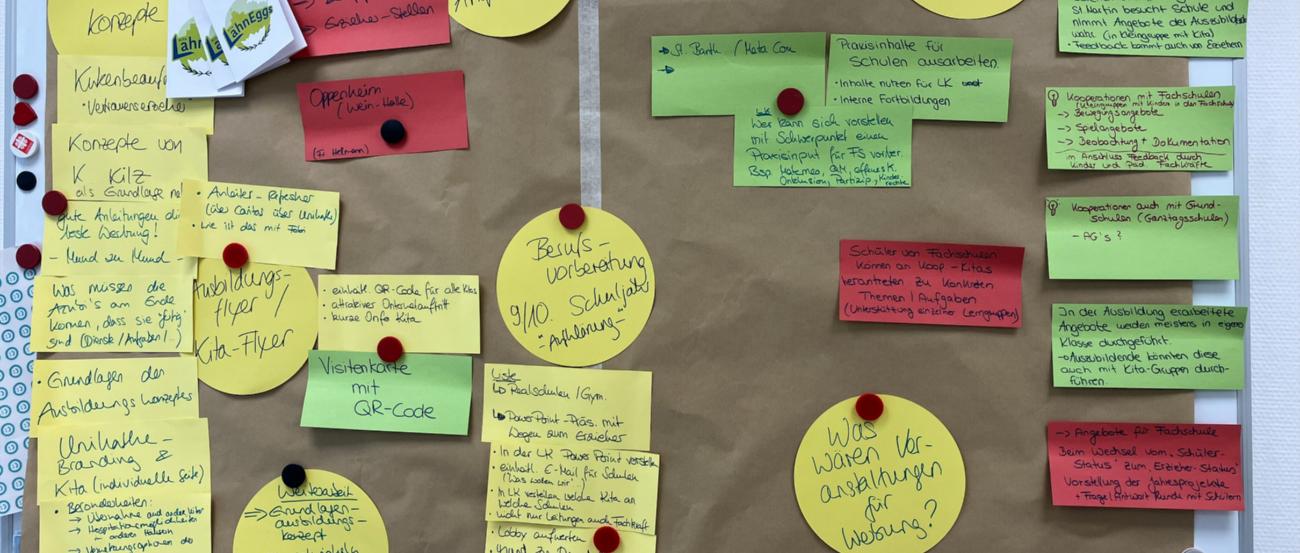 Konzepte
LahnEggs
→ Erzieher-Stellen
Oppenheim
(Wein-Halle)
Konzepte von
K Kilz
als Grundlage
gute Anleitungen
beste Werbung!
- Mund zu Mund -
• Anleiter-Refresher
(über Caritas über Unikathe)
• wie ist das mit
Was müssen die
Azubi's am Ende
können, dass sie "fertig"
sind (Dienste/Aufgaben/...)
Ausbildungs-
flyer /
Kita-Flyer
• einheitl. QR-Code für alle Kitas
• attraktiver Internetauftritt
• kurze Info Kita
Visitenkarte
mit
QR-Code
• Grundlagen der
Ausbildungskonzeptes
Unikathe-
Branding &
Kita (individuelle Seite)
• Besonderheiten:
→ Hospitationsmöglichkeiten
in anderen Häusern
⇒ Grundlagen-
ausbildungs-
konzept
Berufs-
vorberatung
9/10. Schuljahr
"Aufklärung"
Liste
↳ Realschulen / Gym.
↳ PowerPoint-Präs. mit
Wegen zum Erzieher
• In der LK PowerPoint vorstellen
• einheitl. E-Mail für Schulen
("Was wollen wir")
• In LK verteilen welche Kita an
welche Schulen
• nicht nur Leitungen auch Fachkraft
• Lobby aufwerten
→ St. Barth. /
→
Praxisinhalte für
Schulen ausarbeiten.
• Inhalte nutzen für LK und
• Interne Fortbildungen
LK
Wer kann sich vorstellen
mit Schwerpunkt einen
Praxisinput für FS vorber.
Bsp. Waterneo, QM, offenes K.
Inklusion, Partizip., Kinderrechte
Schüler von Fachschulen
können an Koop-Kitas
herantreten zu konkreten
Themen / Aufgaben
(Unterstützung einzelner Lerngruppen)
Was
waren Ver-
anstaltungen
für
Werbung?
St. Martin besucht Schule und
nimmt Angebote der Auszubild
wahr (in Kleingruppe mit Kita)
• Feedback kommt auch von Erziehern
Kooperationen mit Fachschulen
(Kleingruppen mit Kindern in der Fachschule)
→ Bewegungsangebote
→ Spielangebote
→ Beobachtung + Dokumentation
im Anschluss Feedback durch
Kinder und Päd. Fachkräfte
Kooperationen auch mit Grund-
schulen (Ganztagsschulen)
- AG's?
In der Ausbildung erarbeitete
Angebote werden meistens in eigener
Klasse durchgeführt.
→ Auszubildende könnten diese
auch mit Kita-Gruppen durch-
führen.
→ Angebote für Fachschule
Beim Wechsel vom "Schüler-
Status" zum "Erzieher-Status"
Vorstellung der Jahresprojekte
+ Frage/Antwort Runde mit Schülern